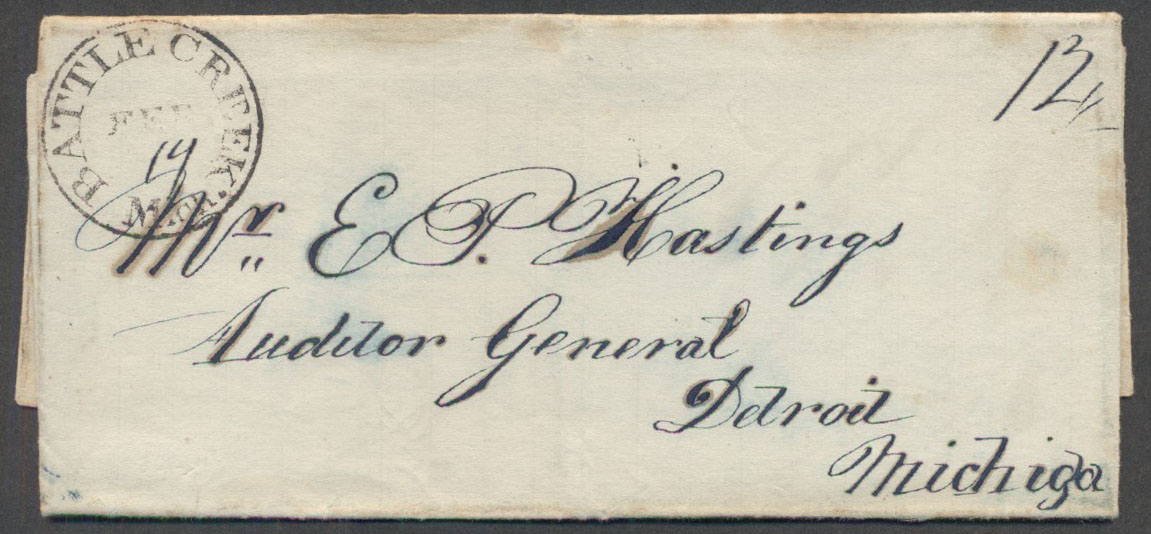 BATTLE CREEK MICH
FEB
19
12
Mr E P. Hastings
Auditor General
Detroit
Michiga